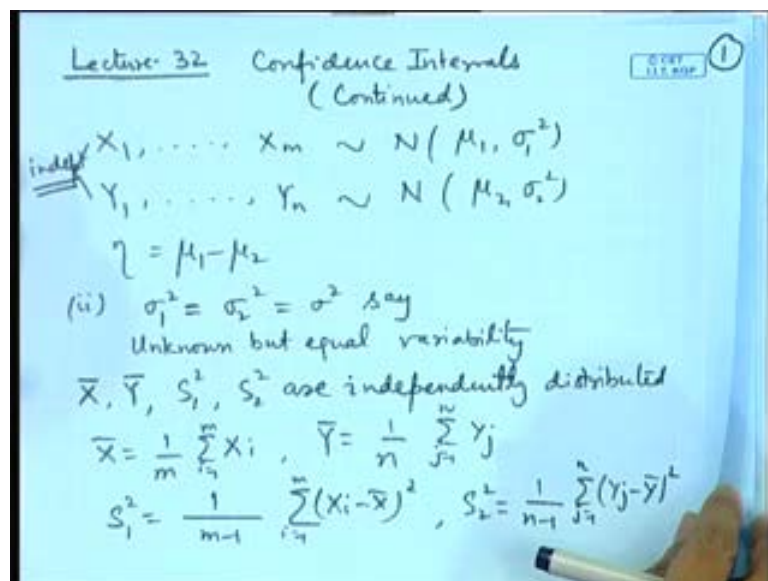 Lecture- 32 Confidence Intervals
(Continued)
① 
© CET
I.I.T. KGP
indep X₁, ..... Xm ~ N( μ₁, σ₁²)
Y₁, ......, Yn ~ N ( μ₂, σ₂²)
η = μ₁-μ₂
(ii) σ₁² = σ₂² = σ² say
Unknown but equal variability
X̄, Ȳ, S₁², S₂² are independently distributed
X̄ = 1/m Σᵢ₌₁ᵐ Xi , Ȳ = 1/n Σⱼ₌₁ⁿ Yj
S₁² = 1/(m-1) Σᵢ₌₁ᵐ (Xi-X̄)² , S₂² = 1/(n-1) Σⱼ₌₁ⁿ (Yj-Ȳ)²